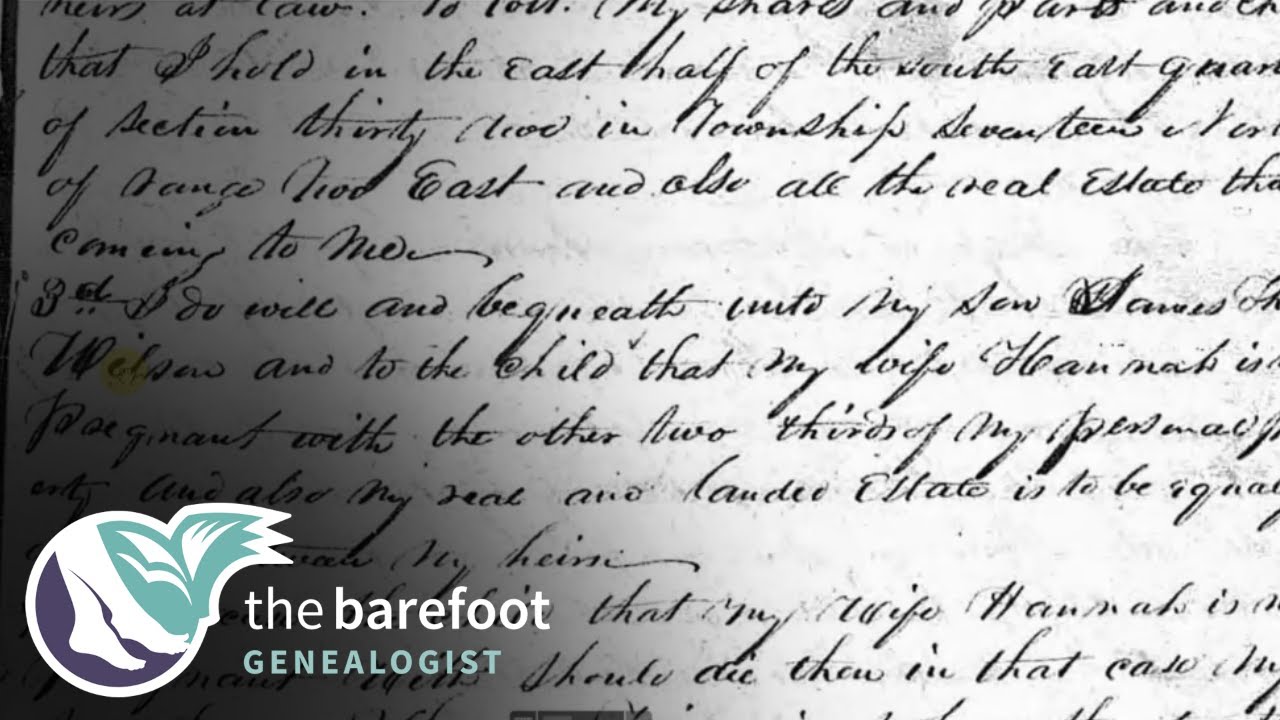 heirs at law. To wit. My shares and parts and
that I hold in the East half of the south East quar
of section thirty two in Township seventeen Nor
of range two East and also all the real Estate tha
coming to Me
3rd I do will and bequeath unto My son James Th
Wilson and to the child that My wife Hannah is
Pregnant with the other two thirds of My personal p
erty and also My real and landed Estate is to be equal
My heirs
that My Wife Hannah is
with should die then in that case My
the barefoot
GENEALOGIST